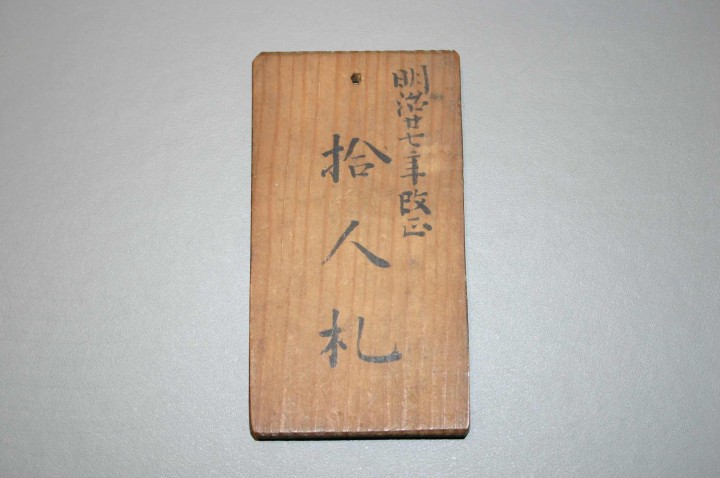 明治廿七年改正
拾人札